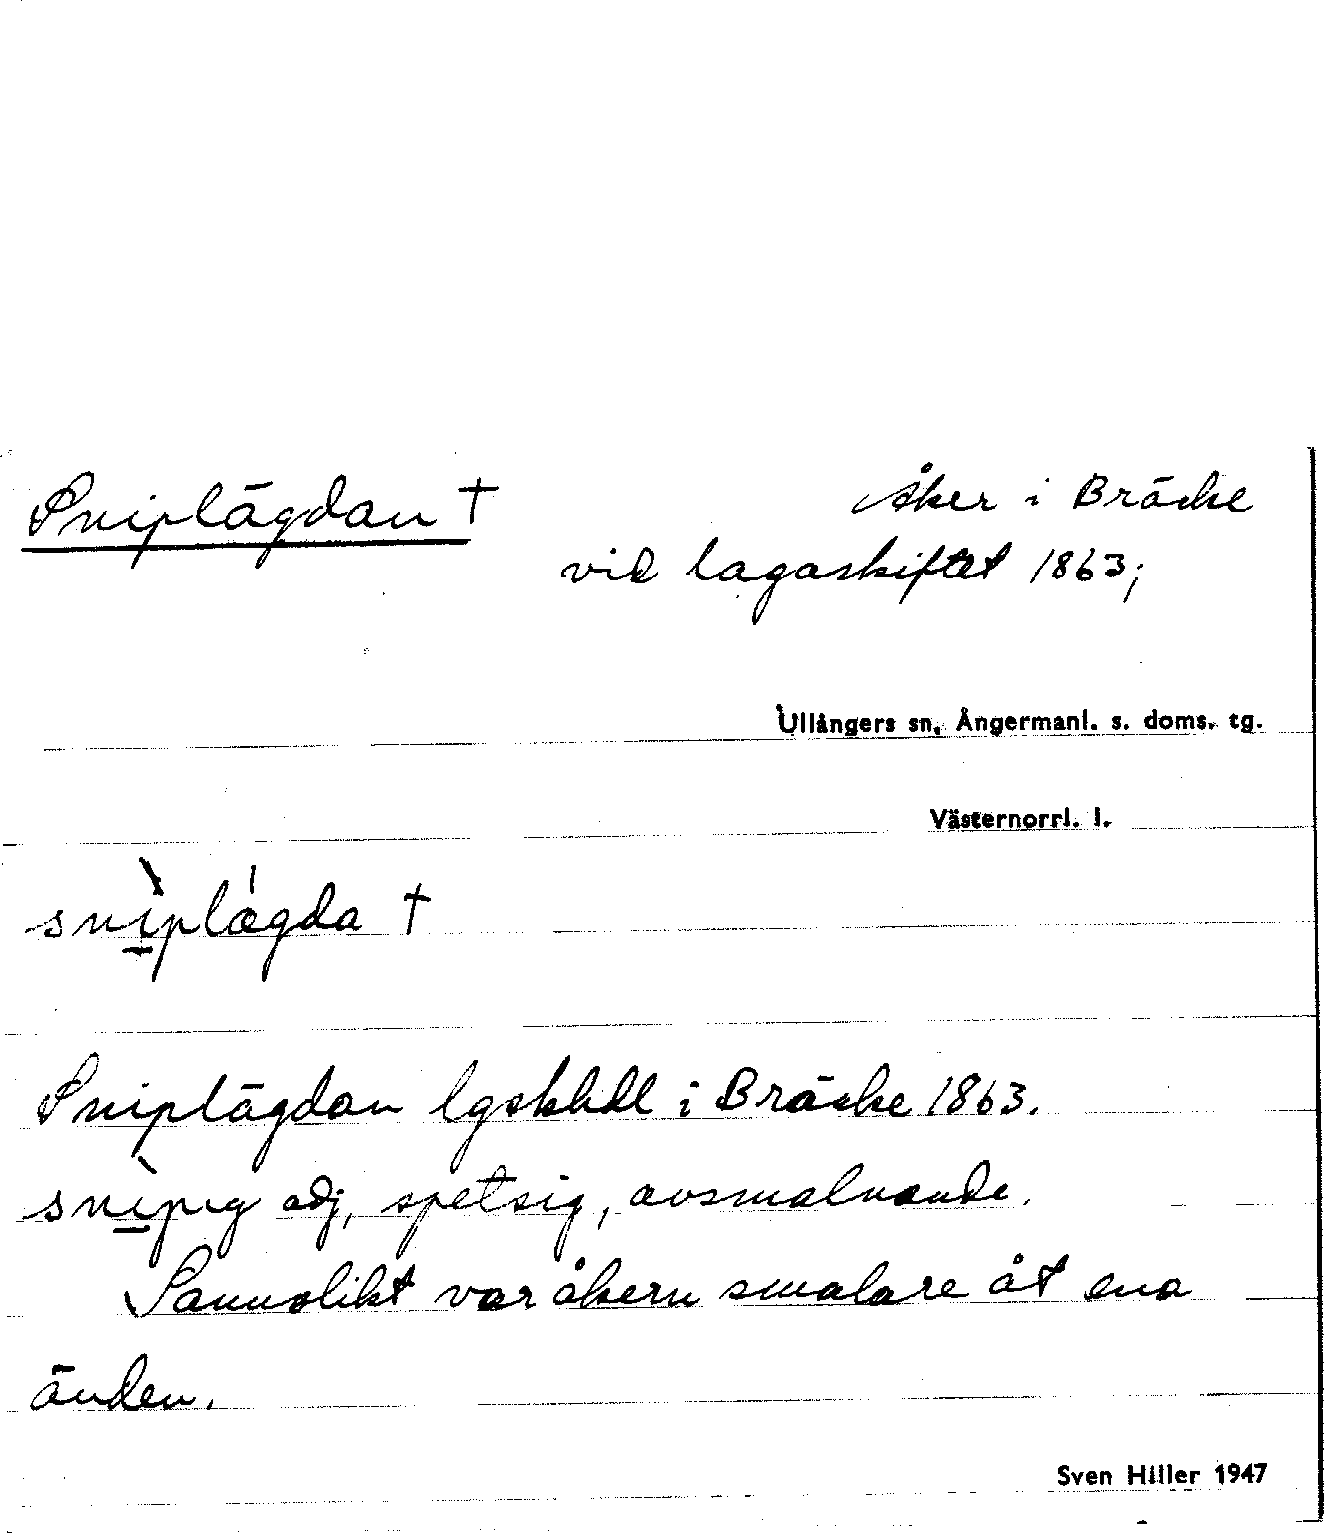 Sniplägdan † Åker i Bräcke
vid lagaskiftet 1863;
Ullångers sn, Ångermanl. s. doms. tg.
Västernorrl. l.
snìplǽgda †
Sniplägdan lgskhdl i Bräcke 1863.
snìpig adj, spetsig, avsmalnande.
Sannolikt var åkern smalare åt ena
änden.
Sven Hiller 1947